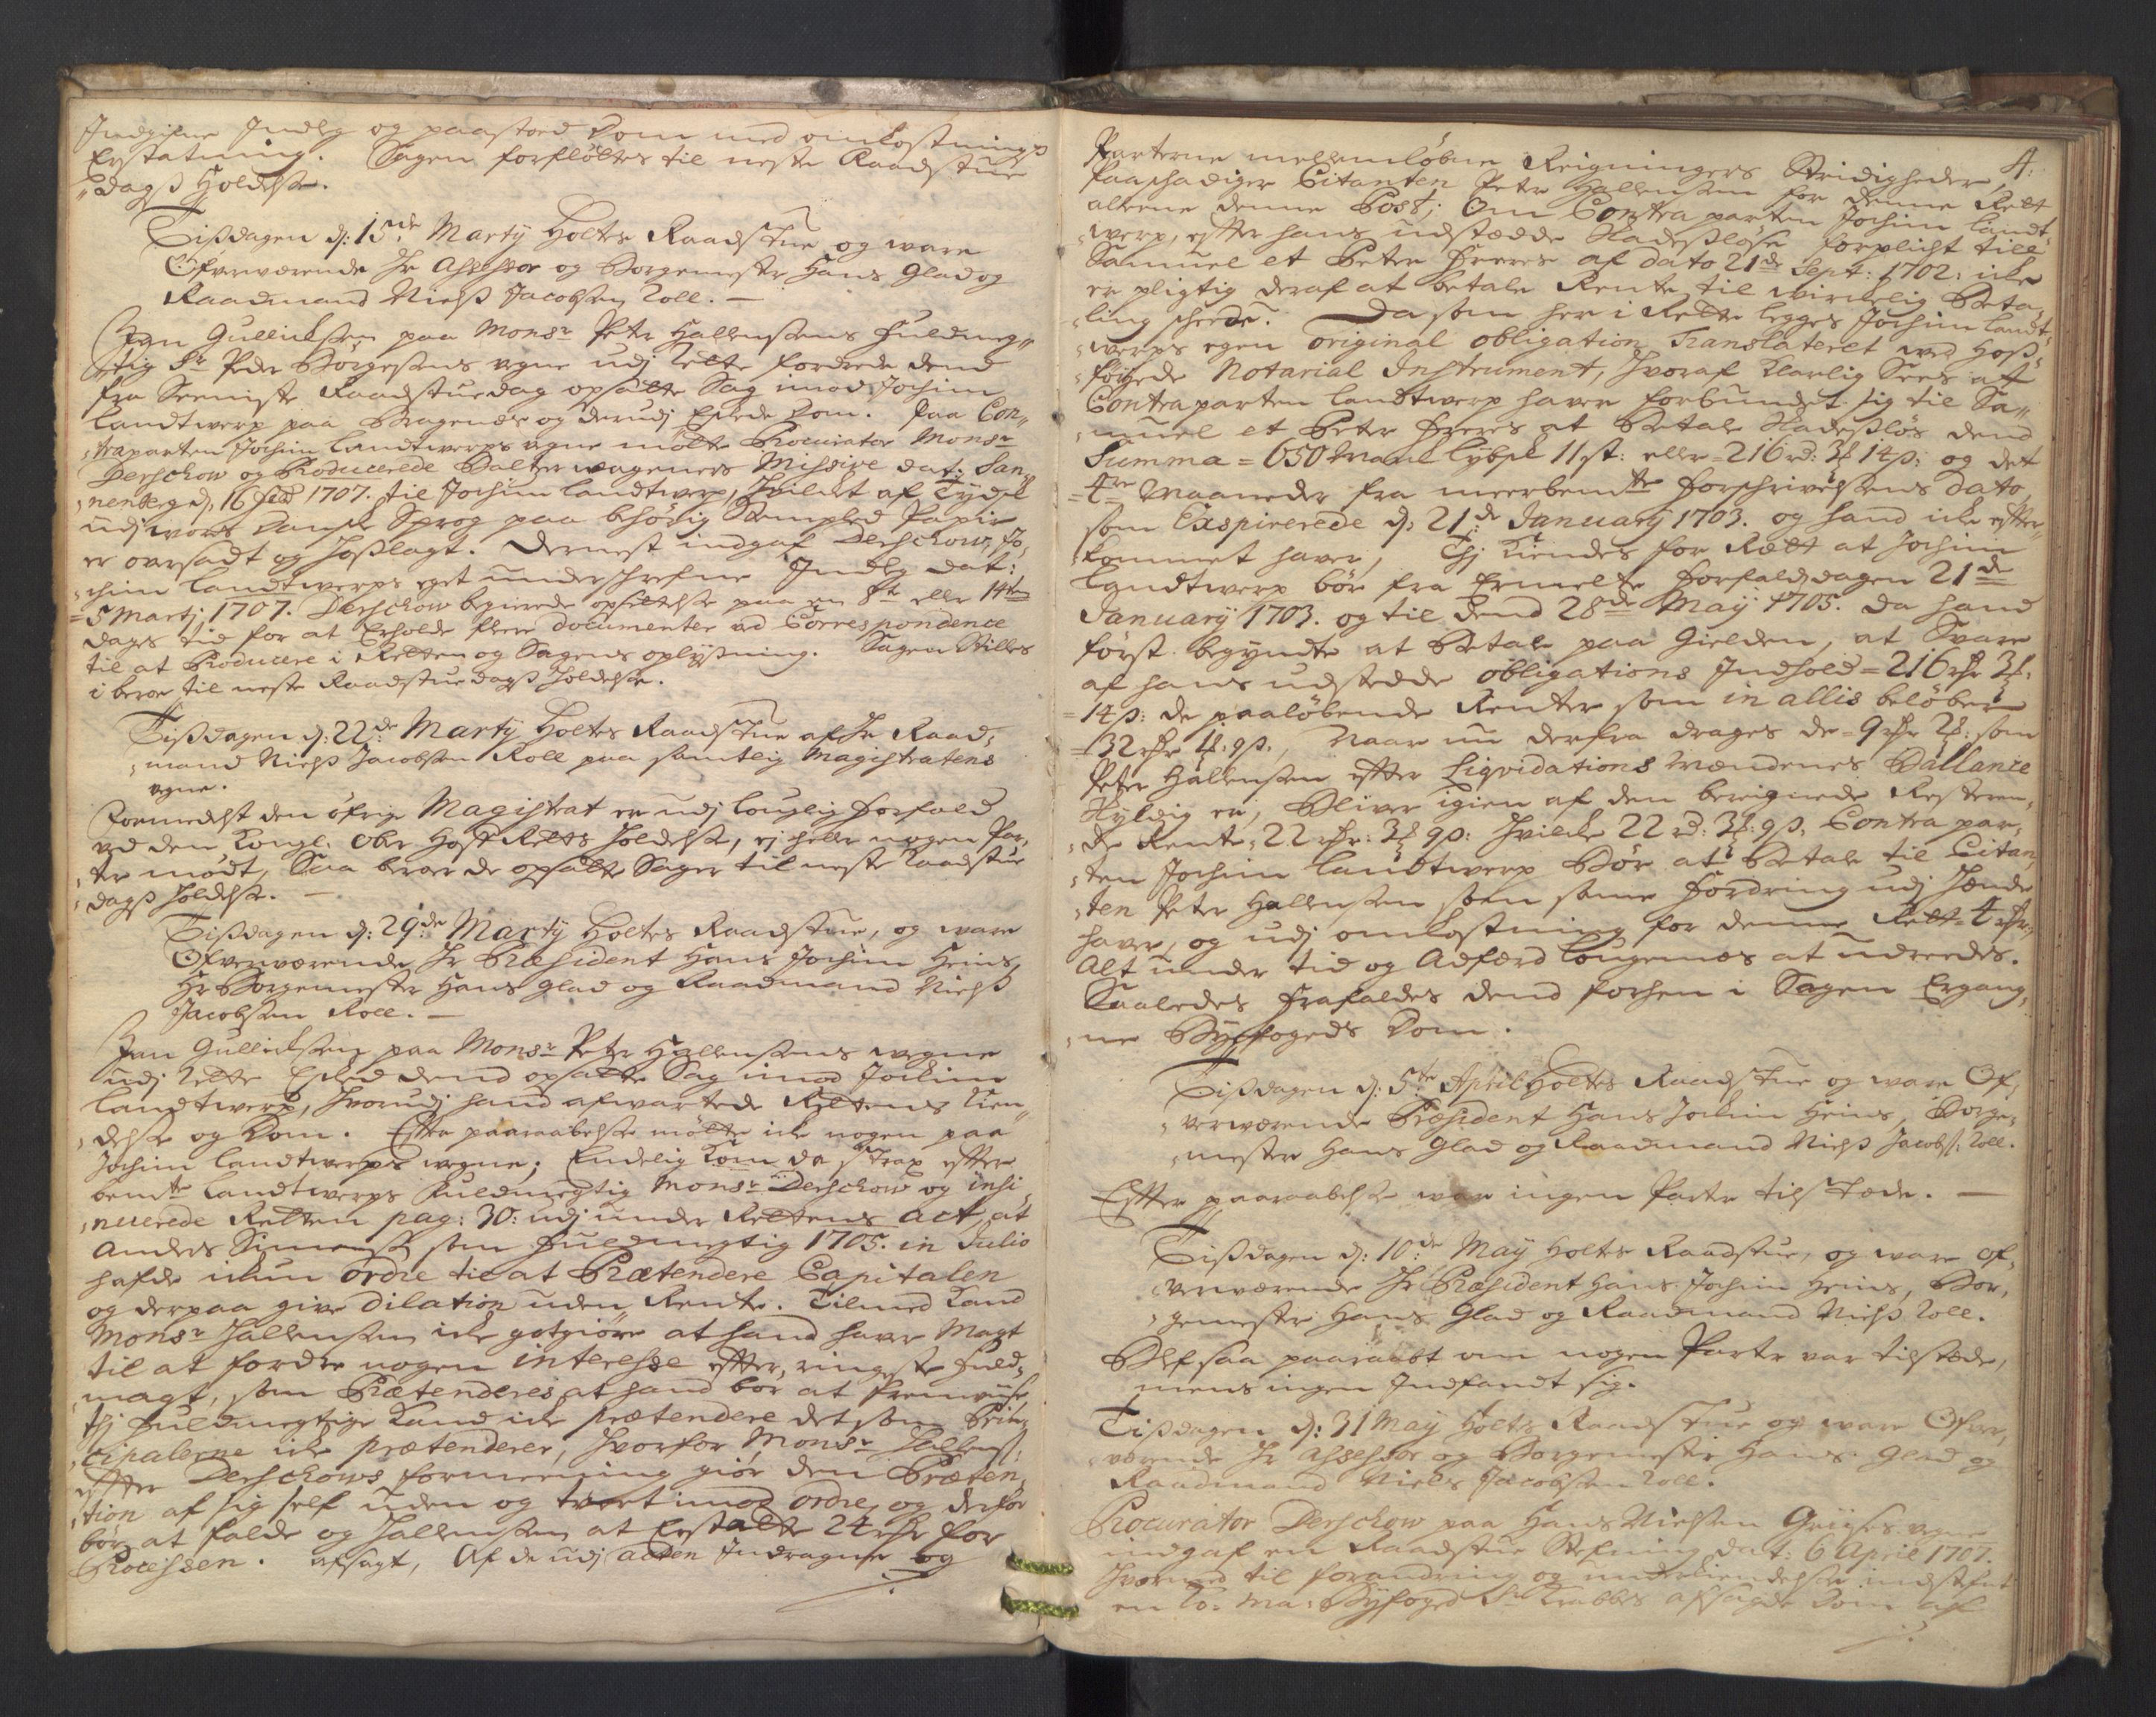 Indgifne Indleg og paastoed Dom med omkostnings
Erstatning. Sagen forfløttes til neste Raadstue
dags Holdelse.
Tissdagen d: 15de Marty Holtes Raadstue og ware
Ofverværende Hr Assessor og Borgemester Hans Glad og
Raadmand Niels Jacobsen Roll. —
Jan Gullichsen paa Monsr Peter Hallensens Fuldmeg
tig Sr Peder Borgesens vegne udj Rette fordrede dend
fra Seeniste Raadstuedag opsatte Sag imod Jochim
Landtwerp paa Bragenæs og derudj Eskede Dom. Paa Con,,
traparten Jochim Landtwerps vegne mötte Procurator Monsr
Derschow og Producerede Balzer wageners Missive dat: San,,
nenberg d. 16 1707. til Jochim Landtwerp, hvilcket af Tydsk
udj vores Danske Sprog paa behörig Stemplet Papir
er oversadt og hoslagt. Dernest indgaf Derschow, Jo,
chim Landtwerps eget underschrefne Indleg dat:
5 Martj 1707. Derschow begierede opsettelse paa en 8te eller 14ten
dags tid for at Erholde flere documenter ved Correspondence
til at Producere i Retten og Sagens oplysning. Sagen Stilles
i beroe til neste Raadstue dags Holdelse.
Tissdagen d: 22de Marty Holtes Raadstue af Hr Raad,
mand Niels Jacobsen Roll paa samtlig Magistratens
vegne.
Formedelst den öfrige Magistrat er udj louglig forfald
ved den Kongl. Ober Hof Retts Holdelse, ej heller nogen Par,
ter mödt, Saa beroer de opsatte Sager til neste Raadstue
dags Holdelse. —
Tissdagen d: 29de Marty Holtes Raadstue, og ware
Ofverværende Hr Præsident Hans Jochim Heins,
Hr Borgemester Hans Glad og Raadmand Niels
Jacobsen Roll. —
Jan Gullichsen paa Monsr Peter Hallensens wegne
udj Rette Eskede dend opsatte Sag imod Jochim
Landtwerp, hvorudj hand afwartede Rettens Kien,,
delse og Dom. Efter paaraabelse mötte icke nogen paa
Jochim Landtwerps wegne; Endelig kom da strax efter
bemte Landtwerps Fuldmegtig Monsr Derschow og insi,
nuerede Retten pag: 30: udj under Rettens act, at
Anders Simensen som Fuldmegtig 1705. in Julio
hafde ickun ordre til at Prætendere Capitalen
og derpaa give Dilation uden Rente. Tilmed kand
Monsr Hallensen icke gotgiöre at hand haver Magt
til at fordre nogen interesse efter, ringeste Fuld,
magt, som Prætenderes at hand bör at fremviise
thj Fuldmegtige kand icke prætendere det som Prin,
cipalerne icke prætenderer, hvorfor Monsr Hallens:
efter Derschows formeening giör den Præten,
tion af sig self uden og tvert imod ordre, og derfor
bör at falde og Hallensen at Erstatte 24 rdr for
Processen. afsagt, Af de udj acten Indragne og
4.
Parterne mellemløbne Reigningers Stridigheder,
Paaschadiger Citanten Peter Hallensen for denne Rett
alleene denne Post; Om Contra parten Jochim Landt,
werp, efter hans udstædde Skadeslöse forplicht till
Samuel et Peter Freres af dato 21de Sept: 1702. icke
er pligtig deraf at betale Rente til virckelig Beta,
ling scheede. Da som her i Rette legges Jochim Landt,
werps egen original obligation Translateret med hos,
föiede Notarial Instrument, hvoraf klarlig Sees at
Contraparten Landtwerp haver forbundet sig til Sa,,
muel et Peter Freres at Betale Skadeslös dend
Summa = 650 Marck Lybsk 11 st: eller = 216 rd: 3 14 s: og det
4re Maaneder fra meerbemte Forschrivelsens dato,
som Exspirerede d: 21de January 1703. og hand icke efter,
kommet haver, Thj kiendes for Rætt at Jochim
Landtwerp bör fra Ermelte Forfaldsdagen 21de
January 1703. og til dend 28de May 1705. da hand
först begyndte at Betale paa Gielden, at Svare
af hans udstedde obligations Indhold = 216 rdr 3
14 s: de paalöbende Renter som in allis belöber
32 rdr 4 9 s., Naar nu derfra drages de = 9 rdr 2 som
Peter Hallensen efter Liqvidations Mændenes Ballance
Skyldig er, Bliver igien af den bereignede Resteren,
de Rente, 22 rdr: 3 9 s: hvilcke 22 rd: 3 9 s. Contra par,
ten Jochim Landtwerp Bör at Betale til Citan,
ten Peter Hallensen som samme Fordring udj Hænde
haver, og udj omkostning for denne Rett = 4 rdr.
Alt under tid og Adfærd lougmæs at udreedes.
Saaledes Frafaldes dend forhen i Sagen Ergang,
ne Byefogeds Dom.
Tissdagen d: 5te April Holtes Raadstue og ware Of,
verværende Præsident Hans Jochim Heins, Borge,
mester Hans Glad og Raadmand Niels Jacobs: Roll.
Efter paaraabelse war ingen Parter tilstæde. —
Tissdagen d: 10de May Holtes Raadstue, og ware of,
verværende Hr Præsident Hans Jochim Heins, Bor,
gemester Hans Glad og Raadmand Niels Roll.
Blef saa paaraabt om nogen Parter var tilstæde,
mens ingen Indfandt sig.
Tissdagen d: 31 May Holtes Raadstue og ware Ofver,
værende Hr Assessor og Borgemester Hans Glad og
Raadmand Niels Jacobsen Roll.
Procurator Derschow paa Hans Nielsen vegne
indgaf en Raadstue Stefning dat: 6 April 1707.
hvormed til forandring og underkiendelse indstefnt
en Ko: Ma: Byfoged Sr Krabbes afsagde Dom af